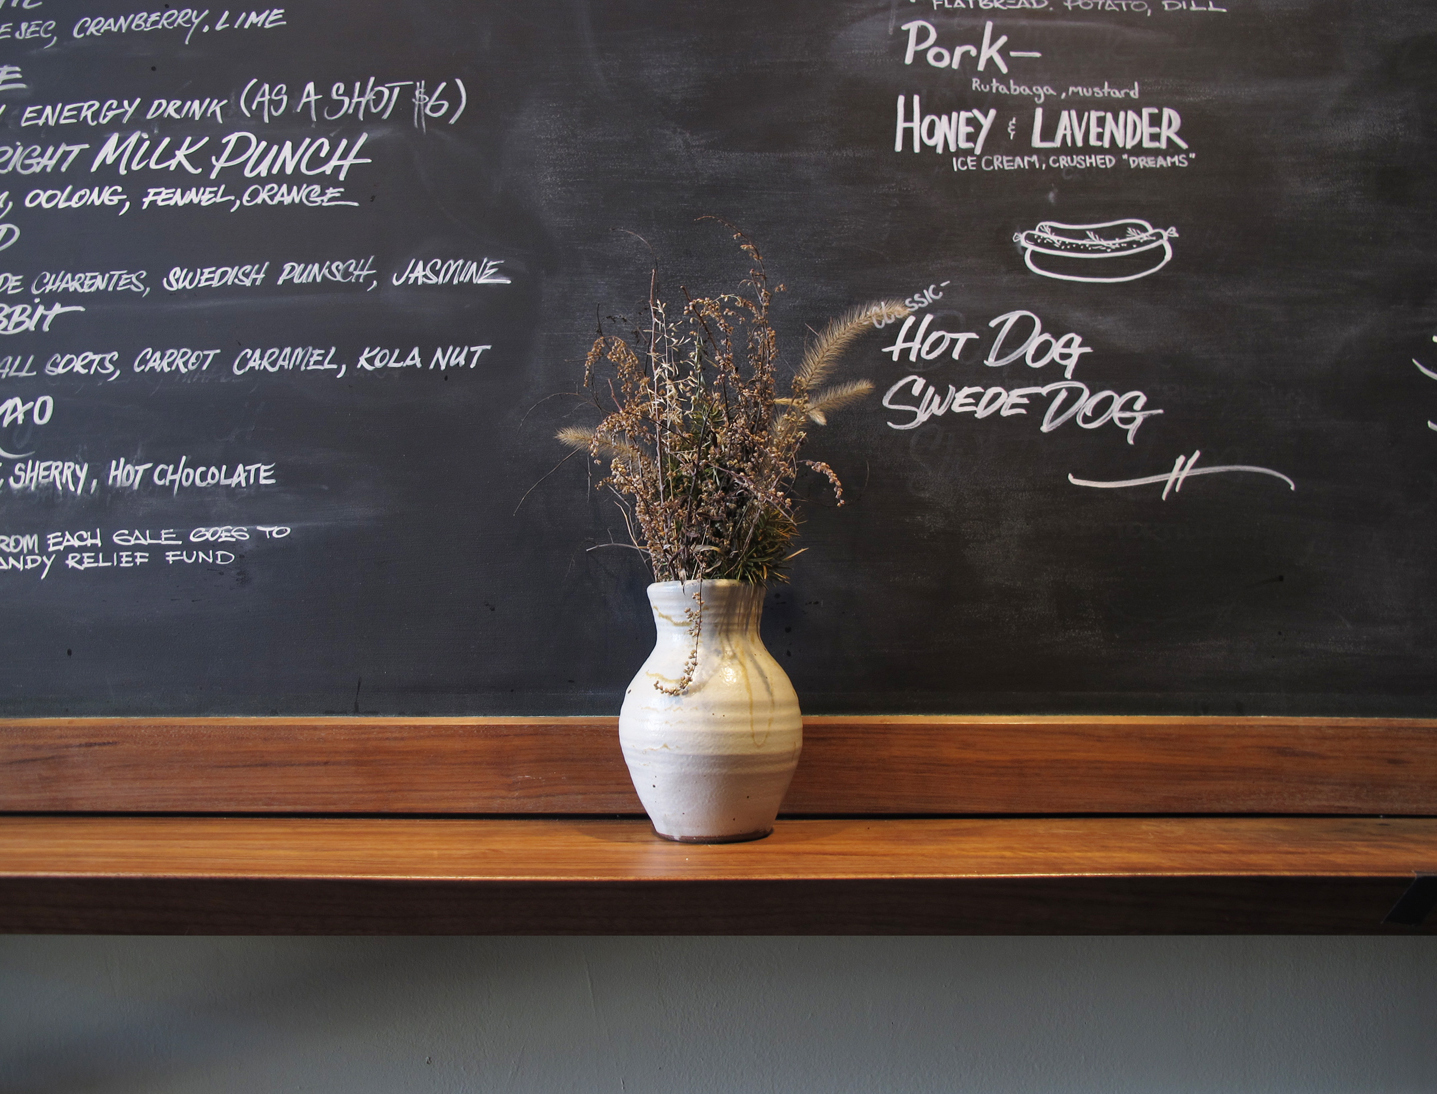 CRANBERRY, LIME
ENERGY DRINK (AS A SHOT $6)
MILK PUNCH
OOLONG, FENNEL, ORANGE
DE CHARENTES, SWEDISH PUNSCH, JASMINE
ALL SORTS, CARROT CARAMEL, KOLA NUT
SHERRY, HOT CHOCOLATE
FROM EACH SALE GOES TO
RELIEF FUND
FLATBREAD. POTATO, DILL
Pork—
Rutabaga, mustard
HONEY & LAVENDER
ICE CREAM, CRUSHED "DREAMS"
CLASSIC-
HOT DOG
SWEDE DOG